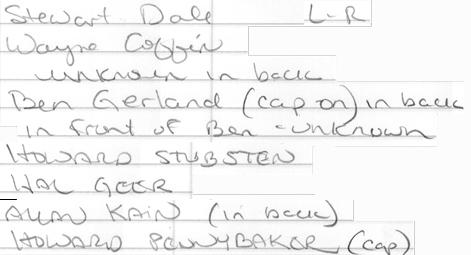 Stewart Dale L-R
Wayne Coffin
unknown in back
Ben Gerland (cap on) in back
in front of Ben - unknown
HOWARD STUBSTEN
HAL GEER
ALLAN KAIN (in back)
HOWARD PENNYBAKER (cap)